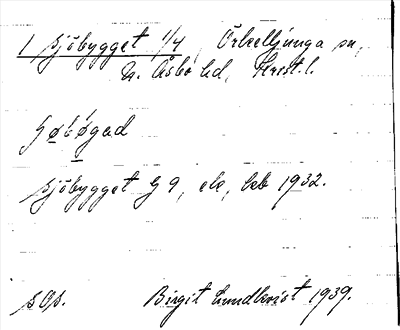 1 Sjöbygget 1/4, Örkelljunga sn,
N. Åsbo hd, Krist. l.
Sjöbygget G 9, ek, lab 1932.
s Op. Birgit Lundkvist 1939.